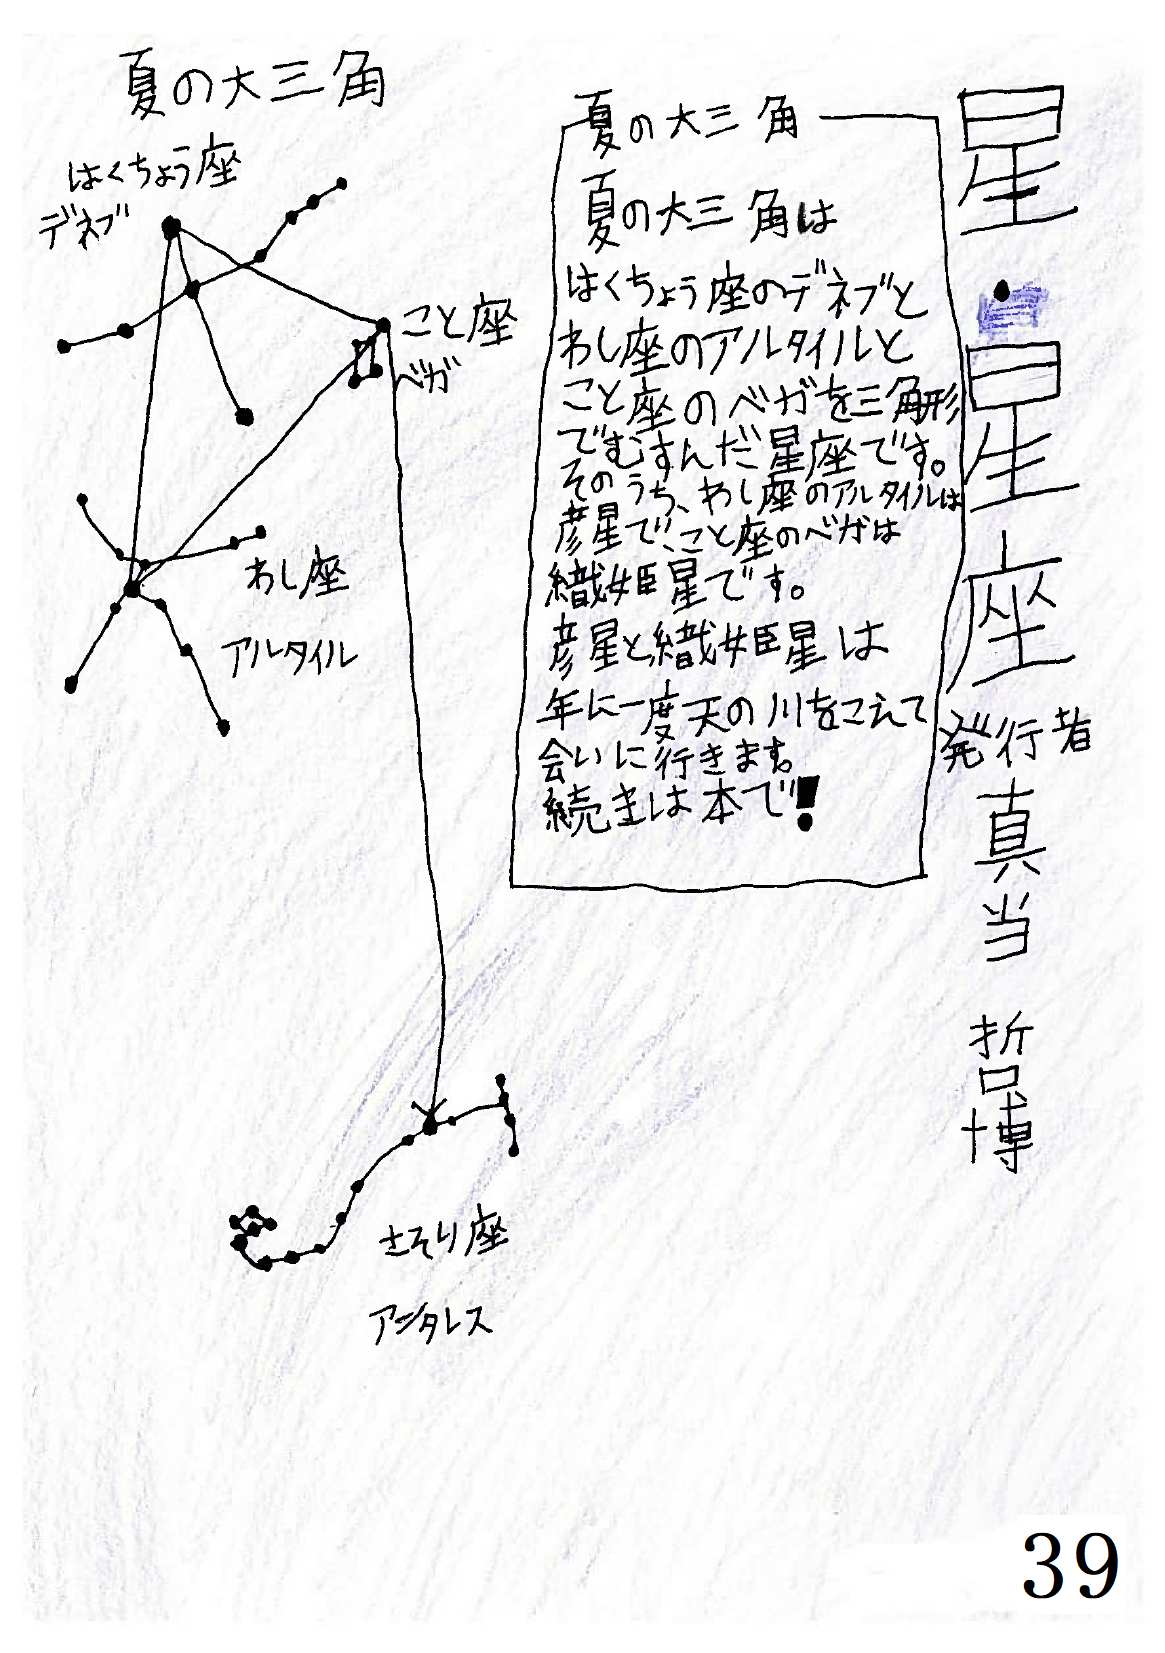 星・星座
発行者
真当 哲博
夏の大三角
夏の大三角は
はくちょう座のデネブと
わし座のアルタイルと
こと座のベガを三角形
でむすんだ星座です。
そのうち、わし座のアルタイルは
彦星で、こと座のベガは
織姫星です。
彦星と織姫星は
年に一度天の川をこえて
会いに行きます。
続きは本で!
夏の大三角
はくちょう座
デネブ
こと座
ベガ
わし座
アルタイル
さそり座
アンタレス
39